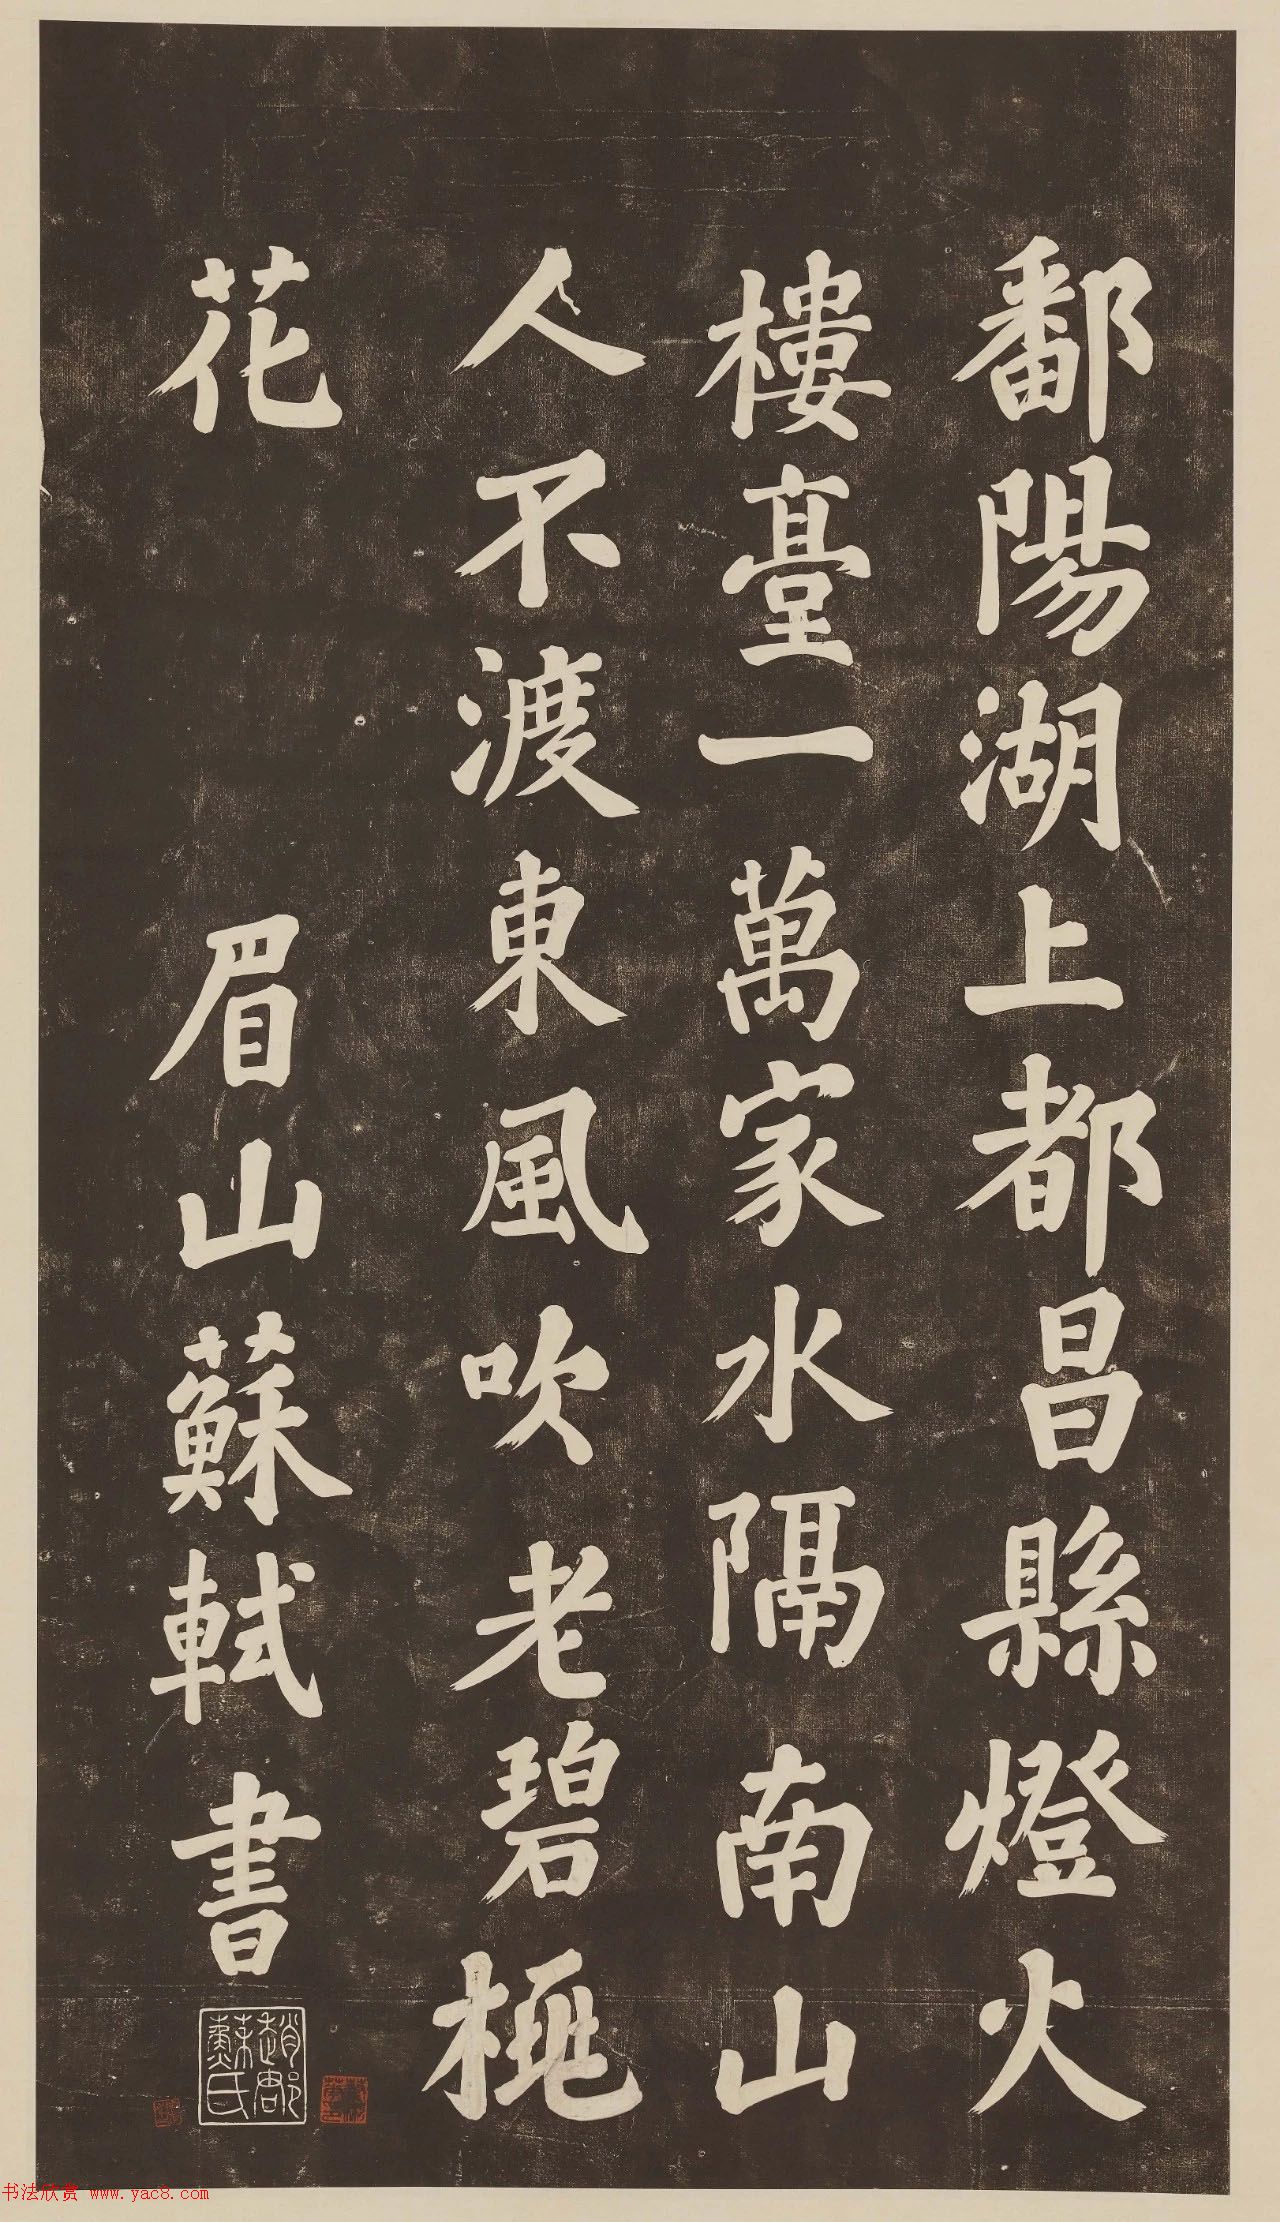 鄱陽湖上都昌縣燈火
樓臺一萬家水隔南山
人不渡東風吹老碧桃
花
眉山蘇軾書
趙郡蘇氏
书法欣赏 www.yac8.com